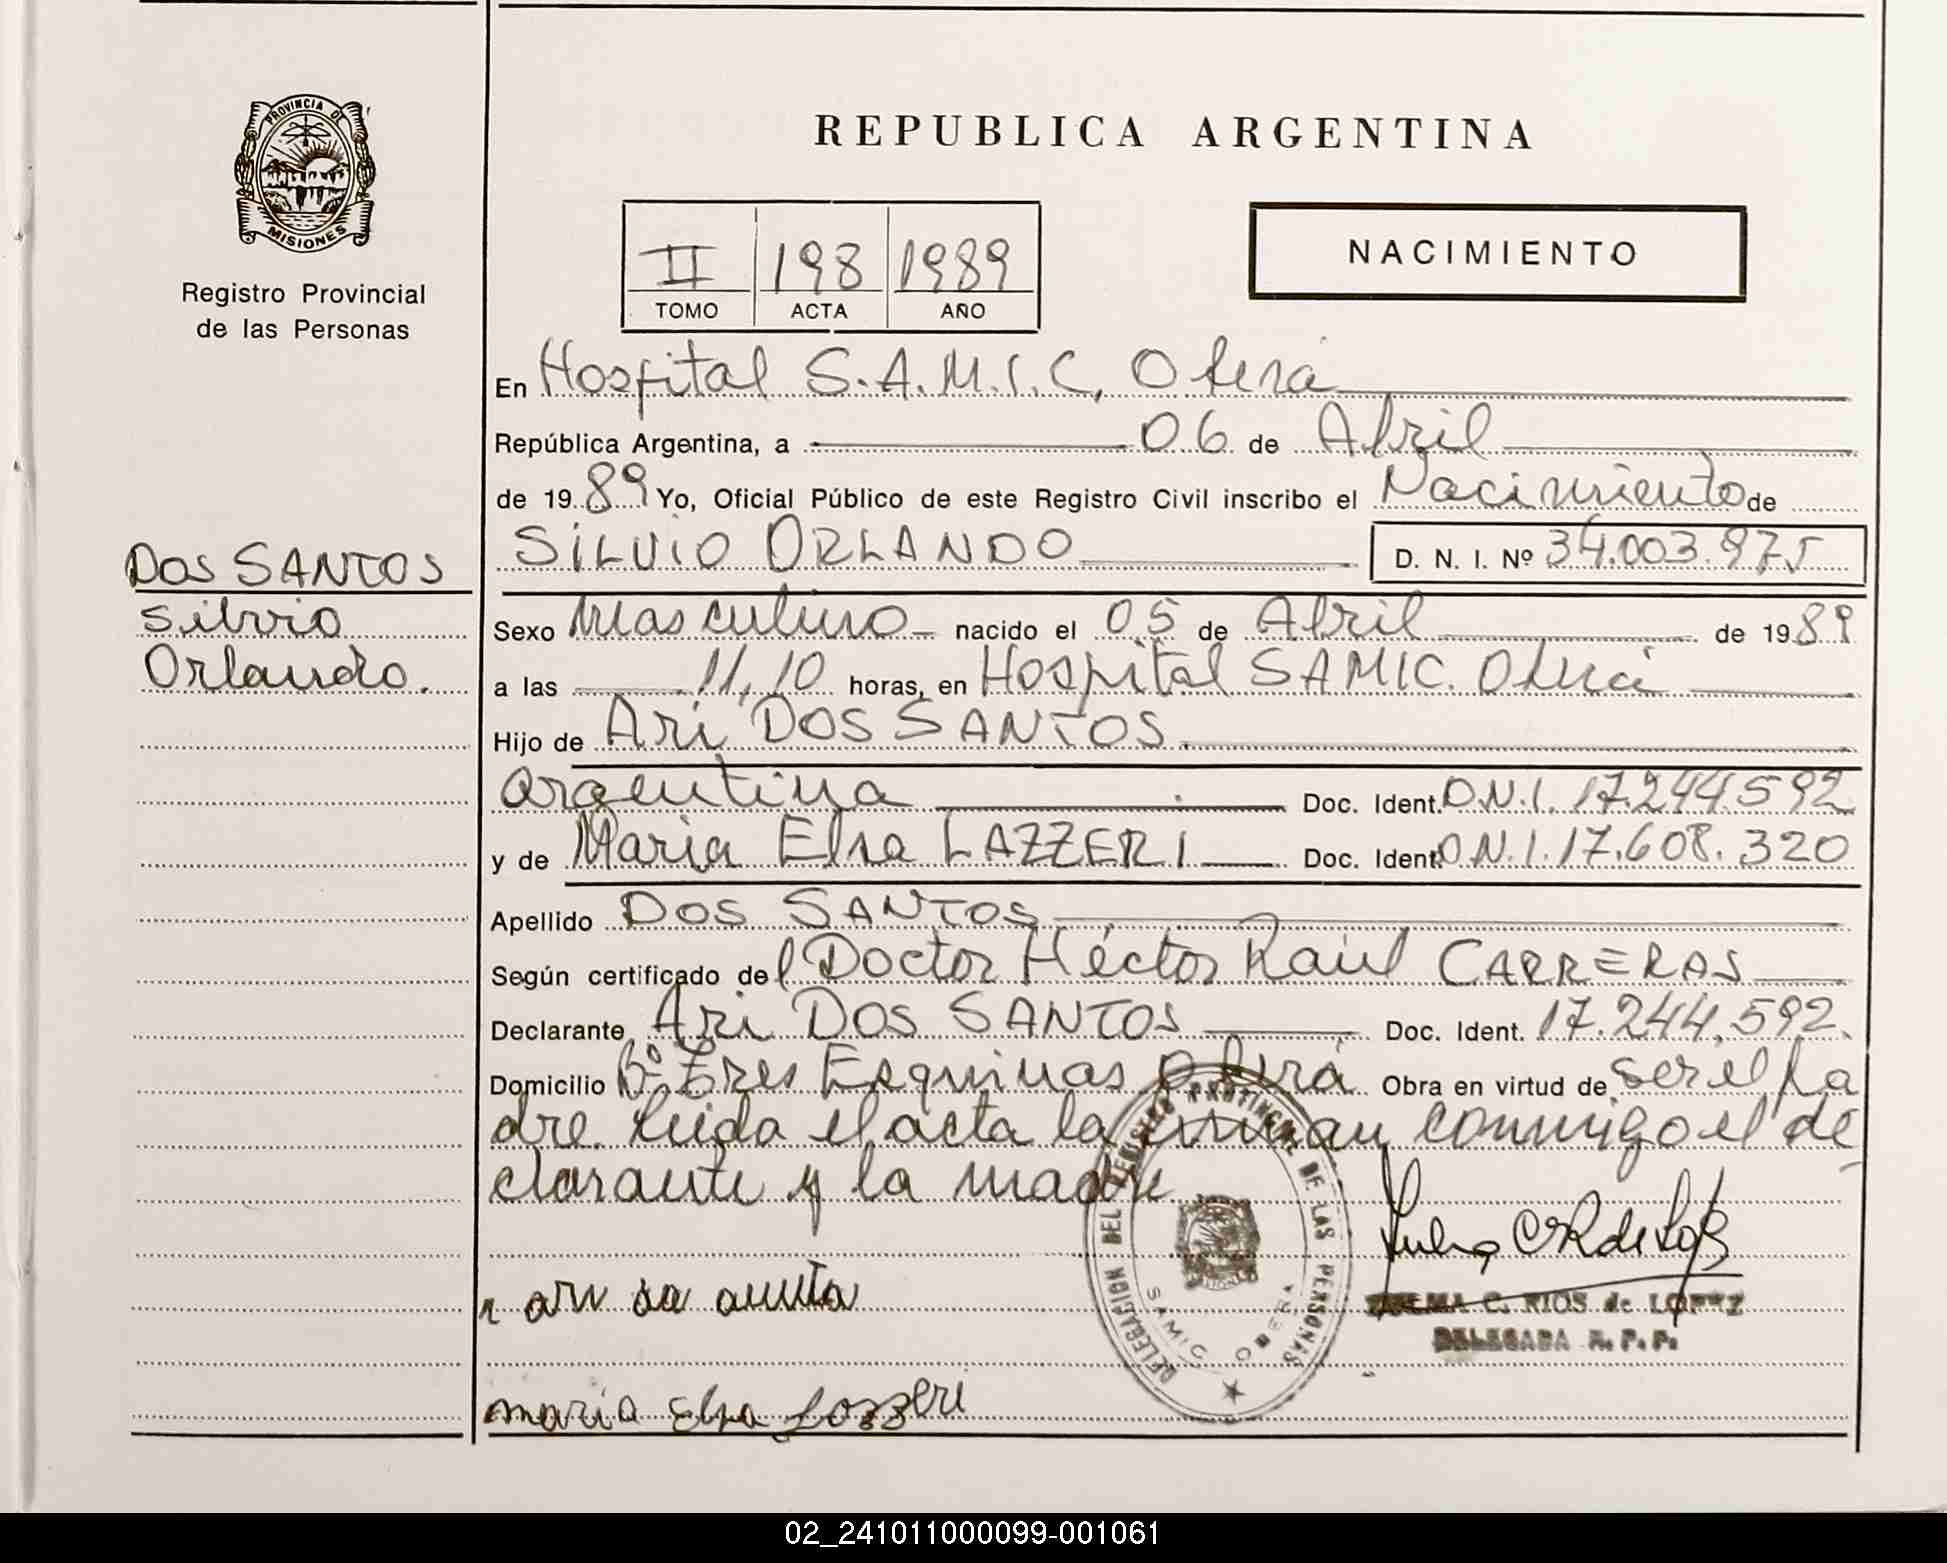 PROVINCIA DE
MISIONES
Registro Provincial
de las Personas
REPUBLICA ARGENTINA
II 198 1989
TOMO ACTA AÑO
NACIMIENTO
En Hospital S.A.M.I.C, Oberá
República Argentina, a 06 de Abril
de 1989 Yo, Oficial Público de este Registro Civil inscribo el Nacimiento de
SILVIO ORLANDO D. N. I. Nº 34.003.975
DOS SANTOS
Silvio
Orlando.
Sexo Masculino nacido el 05 de Abril de 1989
a las 11,10 horas, en Hospital SAMIC. Oberá
Hijo de Ari DOS SANTOS.
argentina Doc. Ident. D.N.I. 17.244.592
y de Maria Elsa LAZZERI Doc. Ident. D.N.I. 17.608.320
Apellido DOS SANTOS
Según certificado del Doctor Héctor Raúl CARRERAS
Declarante Ari DOS SANTOS Doc. Ident. 17.244.592.
Domicilio Bº Tres Esquinas Oberá Obra en virtud de ser el Pa
dre. Leida el acta la firman conmigo el de
clarante y la madre
DELEGACION DEL REGISTRO PROVINCIAL DE LAS PERSONAS
SAMIC OBERA
ZULMA C. RIOS de LOPEZ
DELEGADA R. P. P.
maria Elsa Lazzeri
02_241011000099-001061